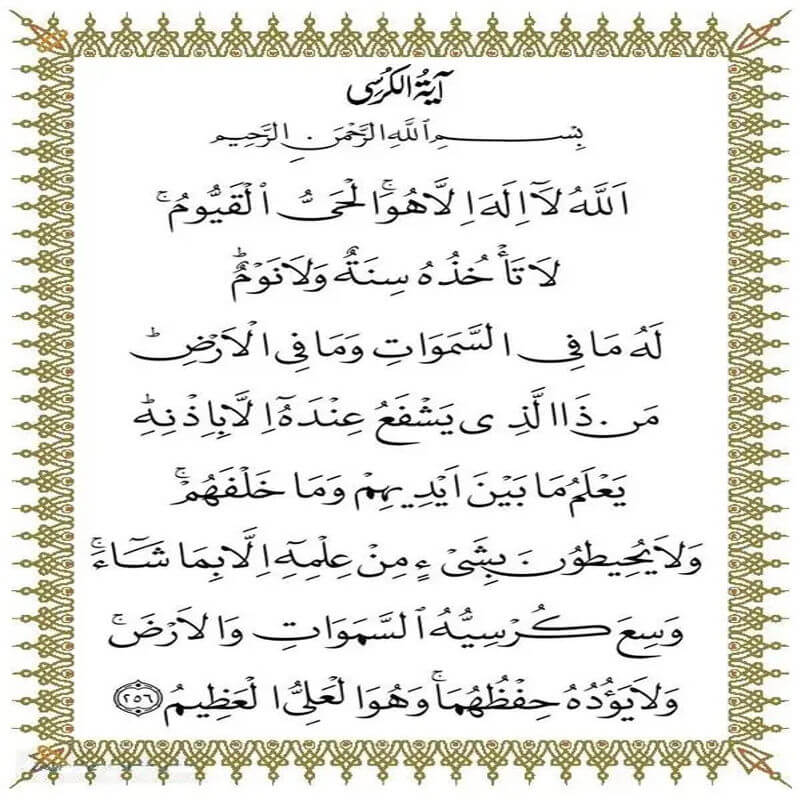 آيَةُ الْكُرْسِى
بِسْمِ ٱللَّهِ الرَّحْمَنِ الرَّحِيمِ
اَللَّهُ لَآ اِلَهَ اِلَّا هُوَۚ اَلْحَىُّ ٱلْقَيُّومُۚ
لَا تَأْخُذُهُ سِنَةٌ وَلَا نَوْمٌؕ
لَهُ مَا فِى السَّمَوَاتِ وَمَا فِى الْاَرْضِؕ
مَنْ ذَا الَّذِى يَشْفَعُ عِنْدَهُٓ اِلَّا بِاِذْنِهِؕ
يَعْلَمُ مَا بَيْنَ اَيْدِيهِمْ وَمَا خَلْفَهُمْۚ
وَلَا يُحِيطُونَ بِشَىْءٍ مِنْ عِلْمِهِٓ اِلَّا بِمَا شَآءَۚ
وَسِعَ كُرْسِيُّهُ ٱلسَّمَوَاتِ وَالْاَرْضَۚ
وَلَا يَؤُدُهُ حِفْظُهُمَاۚ وَهُوَ الْعَلِىُّ الْعَظِيمُ ٢٥٦